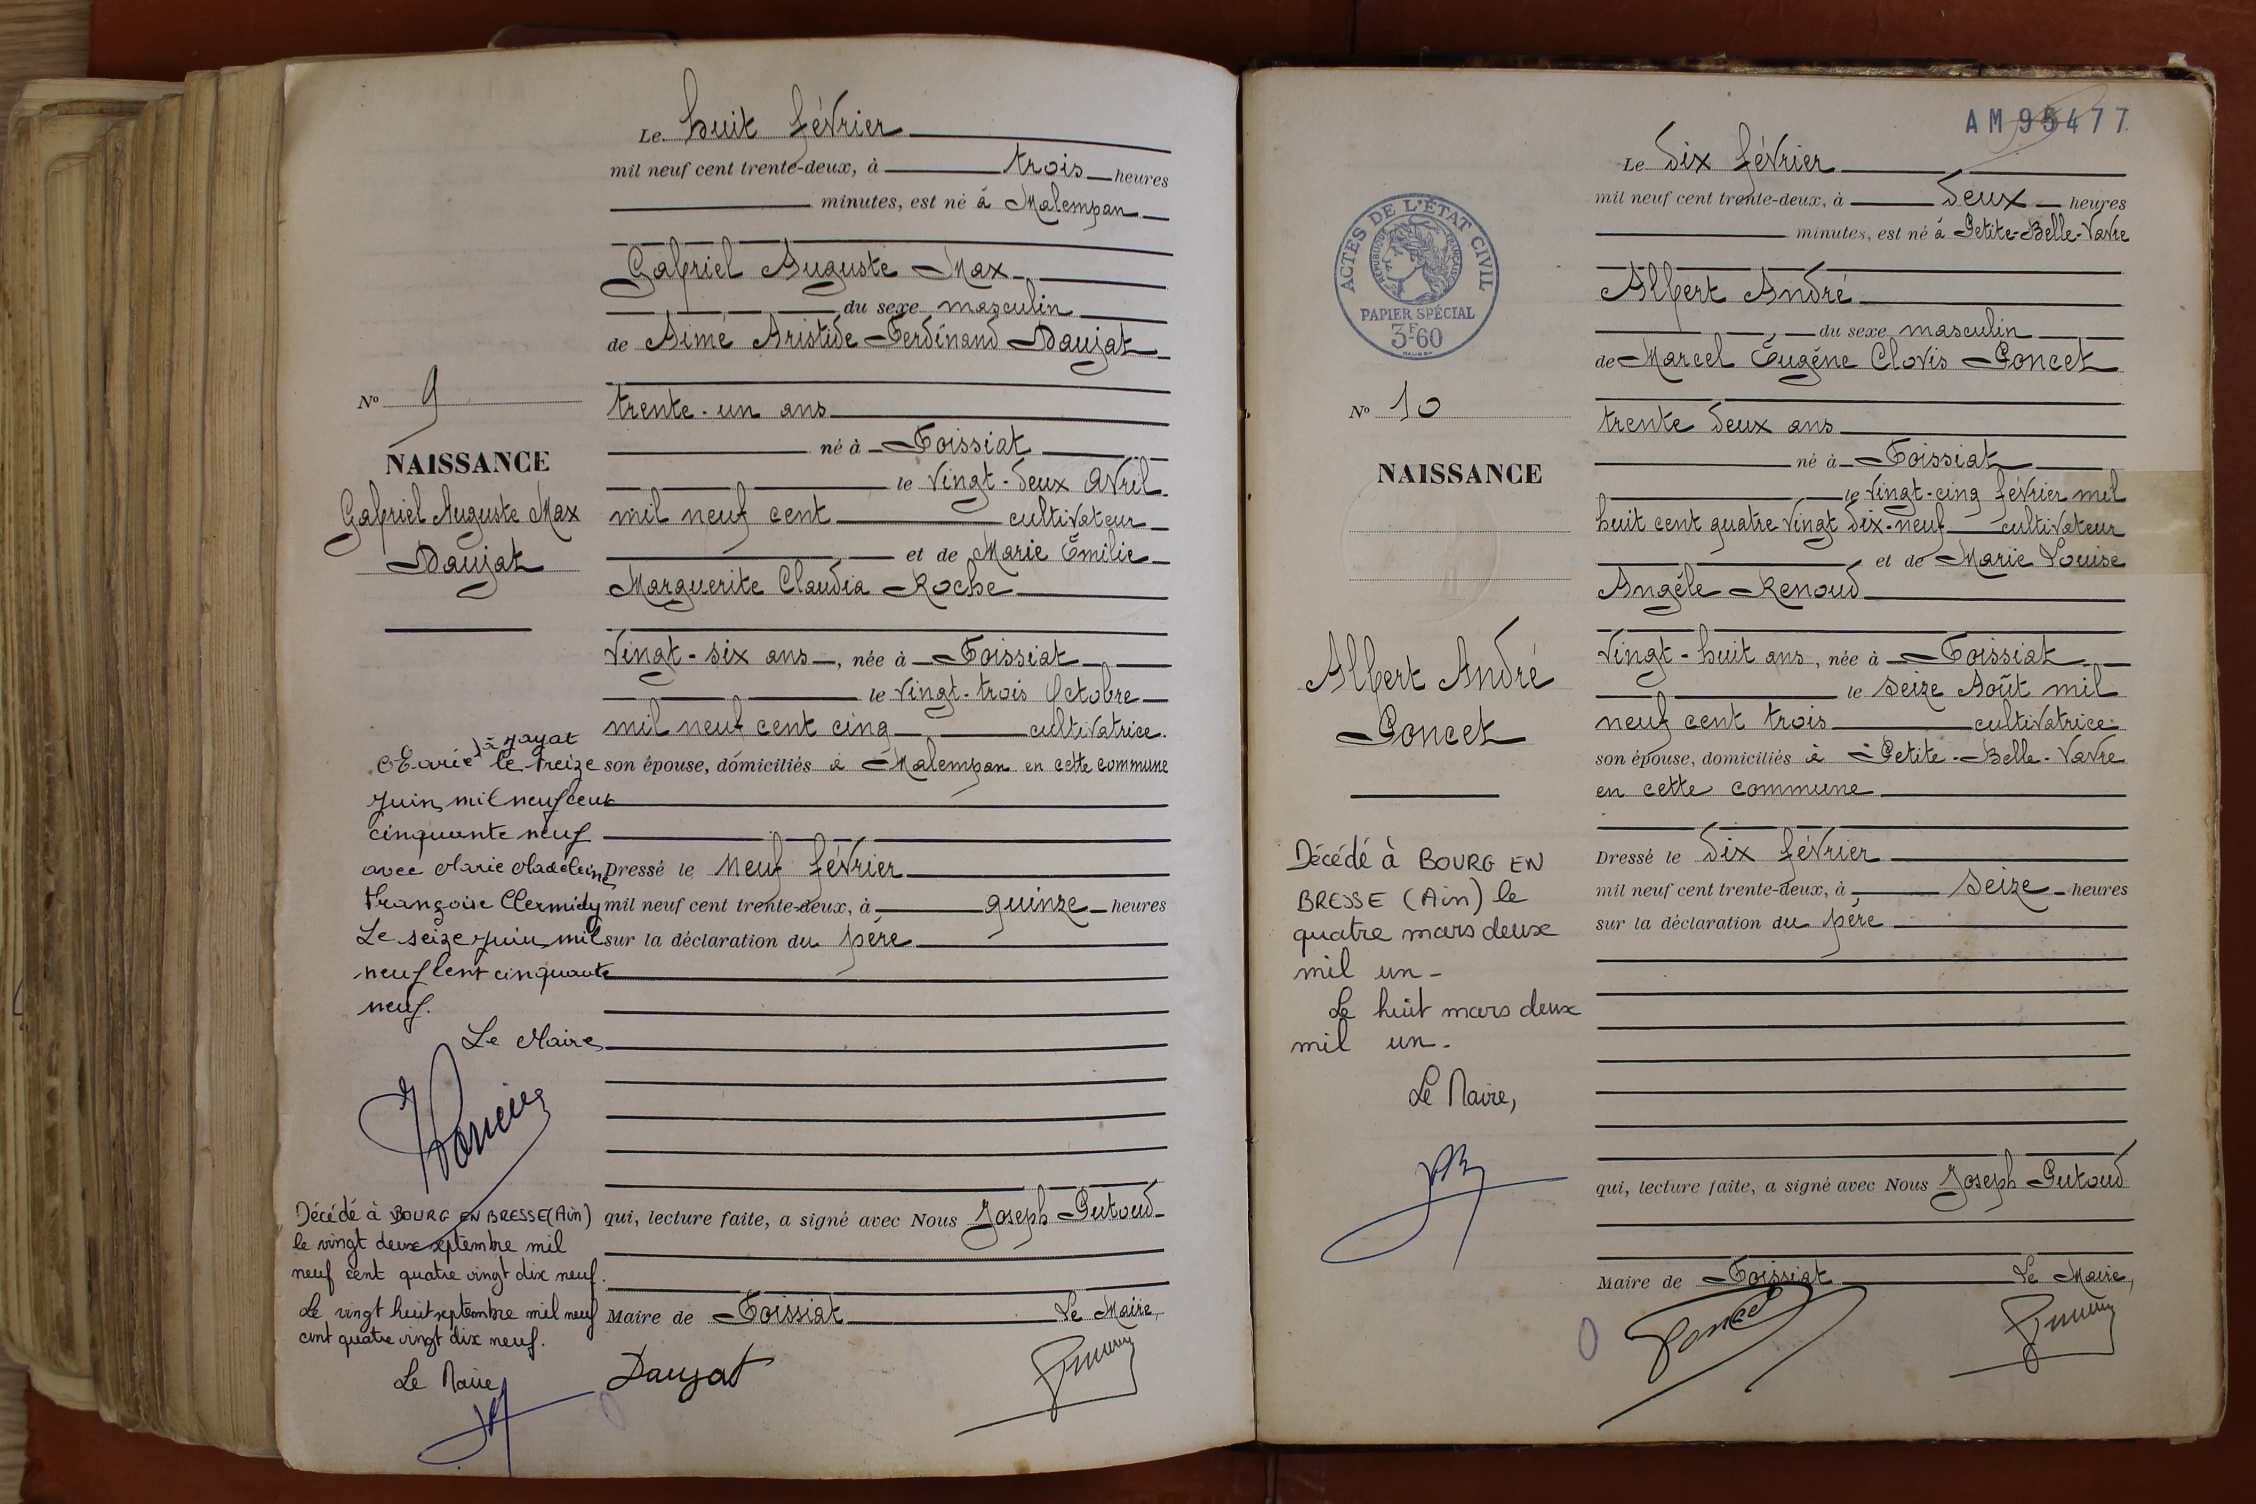 Le huit février
mil neuf cent trente-deux, à trois heures
minutes, est né à Malempan
Gabriel Auguste Max
du sexe masculin
de Aimé Aristide Ferdinand Daujat
trente-un ans
né à Foissiat
le vingt-deux avril
mil neuf cent cultivateur
et de Marie Émilie
Marguerite Claudia Roche
vingt-six ans, née à Foissiat
le vingt-trois Octobre
mil neuf cent cinq cultivatrice.
son épouse, domiciliés à Malempan en cette commune
Dressé le neuf février
mil neuf cent trente-deux, à quinze heures
sur la déclaration du père
qui, lecture faite, a signé avec Nous Joseph Putoud
Maire de Foissiat Le Maire,
Daujat
No 9
NAISSANCE
Gabriel Auguste Max
Daujat
Marié à Jayat
le treize
juin mil neuf cent
cinquante neuf
avec Marie Madeleine
Françoise Clermidy
Le seize juin mil
neuf cent cinquante
neuf.
Le Maire
Décédé à BOURG EN BRESSE (Ain)
le vingt deux septembre mil
neuf cent quatre vingt dix neuf.
Le vingt huit septembre mil neuf
cent quatre vingt dix neuf.
Le Maire
AM 95477
Le dix février
mil neuf cent trente-deux, à deux heures
minutes, est né à Petite-Belle-Vavre
Albert André
du sexe masculin
de Marcel Eugène Clovis Poncet
trente deux ans
né à Foissiat
le vingt-cinq février mil
huit cent quatre vingt dix-neuf cultivateur
et de Marie Louise
Angèle Renoud
vingt-huit ans, née à Foissiat
le seize Août mil
neuf cent trois cultivatrice
son épouse, domiciliés à Petite-Belle-Vavre
en cette commune
Dressé le dix février
mil neuf cent trente-deux, à seize heures
sur la déclaration du père
qui, lecture faite, a signé avec Nous Joseph Putoud
Maire de Foissiat Le Maire,
Poncet
ACTES DE L'ÉTAT CIVIL
RÉPUBLIQUE FRANÇAISE
PAPIER SPÉCIAL
3F60
No 10
NAISSANCE
Albert André
Poncet
Décédé à BOURG EN
BRESSE (Ain) le
quatre mars deux
mil un-
Le huit mars deux
mil un-
Le Maire,